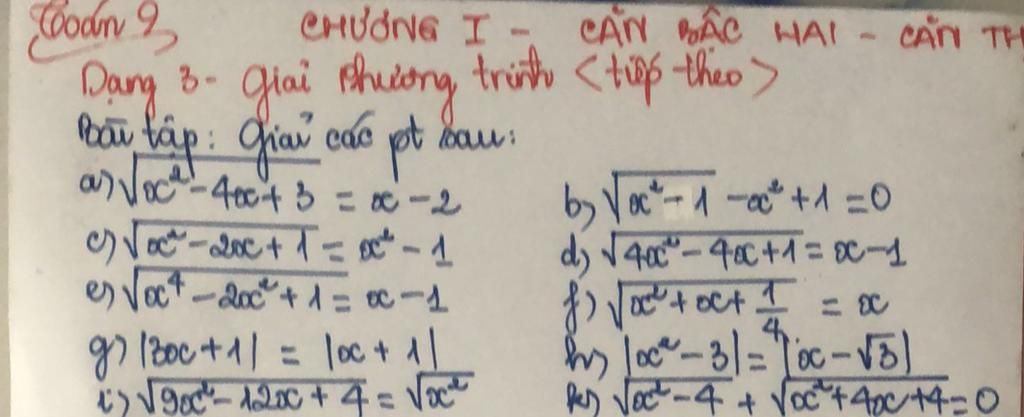 Toán 9 CHƯƠNG I - CĂN BẬC HAI - CĂN TH
Dạng 3 - Giải phương trình <tiếp theo>
Bài tập: Giải các pt sau:
a) √(x² - 4x + 3) = x - 2 b) √(x² - 1) - x² + 1 = 0
c) √(x² - 2x + 1) = x² - 1 d) √(4x² - 4x + 1) = x - 1
e) √(x⁴ - 2x² + 1) = x - 1 f) √(x² + x + 1/4) = x
g) |3x + 1| = |x + 1| h) |x² - 3| = |x - √3|
i) √(9x² - 12x + 4) = √(x²) k) √(x² - 4) + √(x² + 4x + 4) = 0